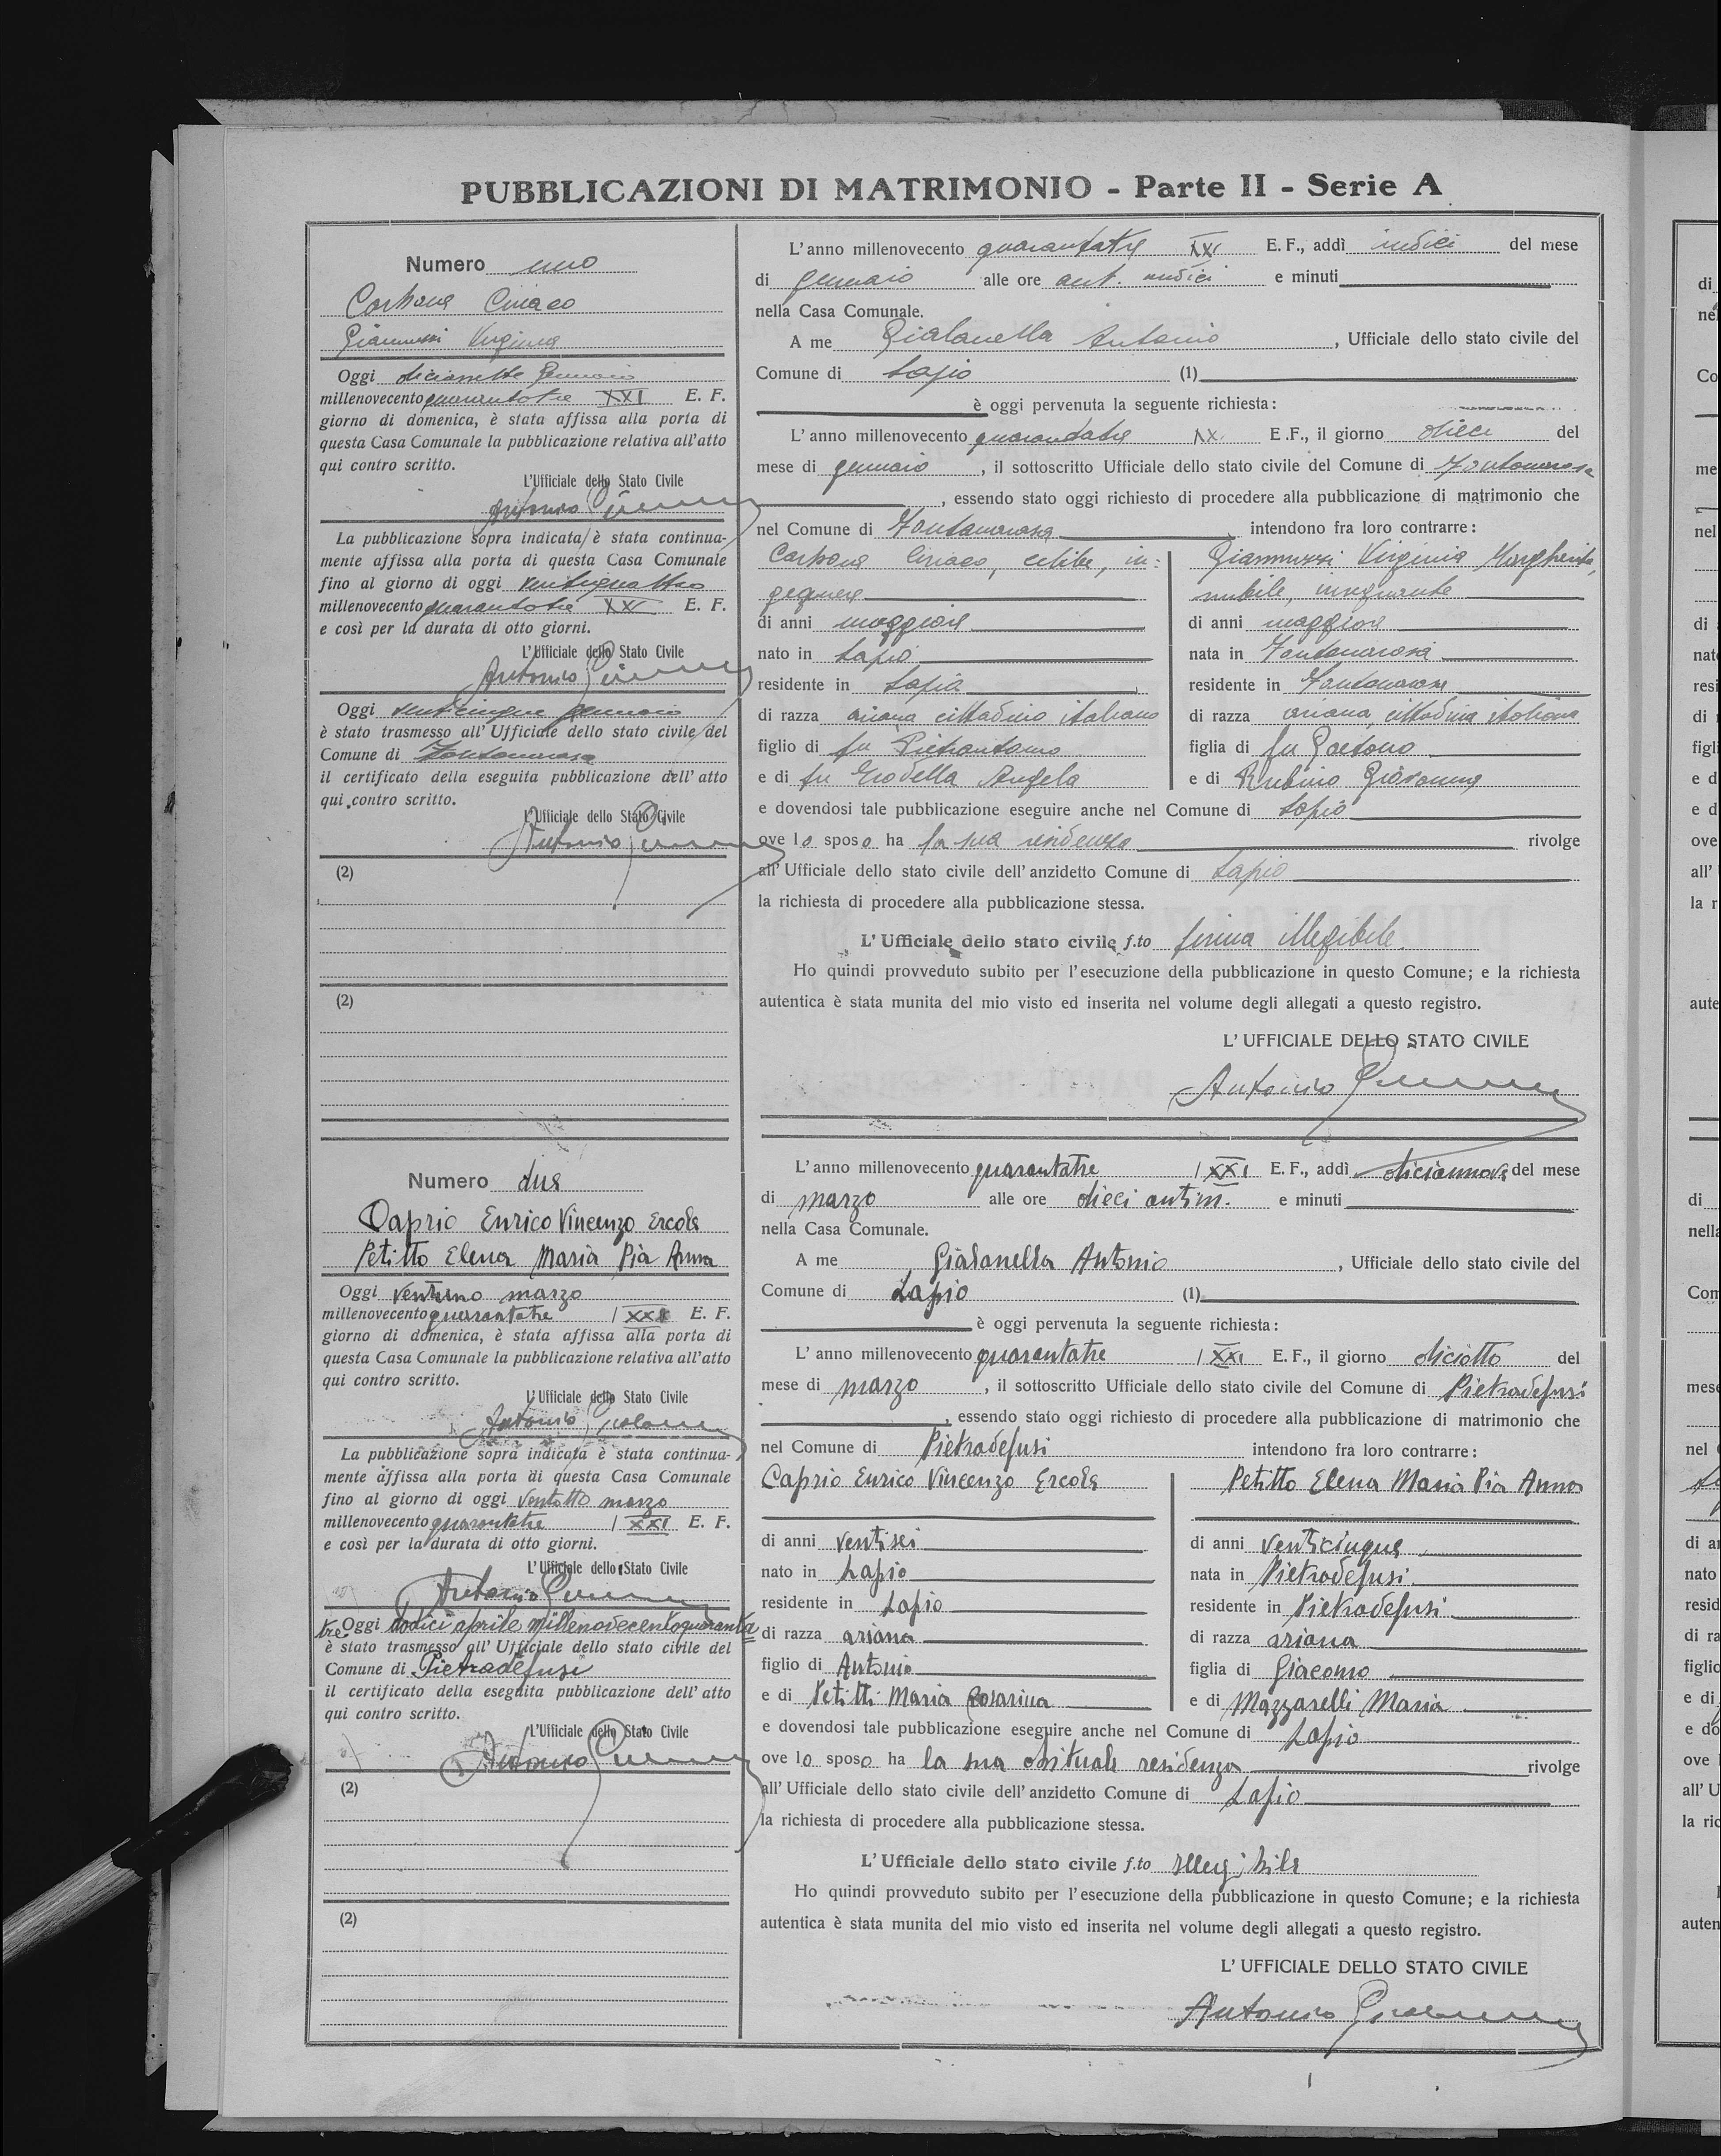 PUBBLICAZIONI DI MATRIMONIO - Parte II - Serie A
Numero uno
Carbone Ciriaco
Giannuzzi Virginia
Oggi diciassette Gennaio
millenovecento quarantatre XXI E. F.
giorno di domenica, è stata affissa alla porta di
questa Casa Comunale la pubblicazione relativa all'atto
qui contro scritto.
L'Ufficiale dello Stato Civile
Antonio
La pubblicazione sopra indicata è stata continua-
mente affissa alla porta di questa Casa Comunale
fino al giorno di oggi ventiquattro
millenovecento quarantatre XXI E. F.
e così per la durata di otto giorni.
L'Ufficiale dello Stato Civile
Antonio
Oggi venticinque gennaio
è stato trasmesso all'Ufficiale dello stato civile del
Comune di Fontanarosa
il certificato della eseguita pubblicazione dell'atto
qui contro scritto.
L'Ufficiale dello Stato Civile
Antonio
(2)
(2)
L'anno millenovecento quarantatre XXI E. F., addì undici del mese
di gennaio alle ore ant. undici e minuti
nella Casa Comunale.
A me Gialanella Antonio, Ufficiale dello stato civile del
Comune di Lapio (1)
è oggi pervenuta la seguente richiesta:
L'anno millenovecento quarantatre XX. E.F., il giorno dieci del
mese di gennaio, il sottoscritto Ufficiale dello stato civile del Comune di Fontanarosa
, essendo stato oggi richiesto di procedere alla pubblicazione di matrimonio che
nel Comune di Fontanarosa intendono fra loro contrarre:
Carbone Ciriaco, celibe, in=
gegnere
di anni maggiore
nato in Lapio
residente in Lapio
di razza ariana cittadino italiano
figlio di fu Pietrantonio
e di fu Angela
Giannuzzi Virginia Margherita,
nubile, insegnante
di anni maggiore
nata in Fontanarosa
residente in Fontanarosa
di razza ariana, cittadina italiana
figlia di fu Gaetano
e di Rubino Giovanna
e dovendosi tale pubblicazione eseguire anche nel Comune di Lapio
ove lo sposo ha la sua residenza rivolge
all'Ufficiale dello stato civile dell'anzidetto Comune di Lapio
la richiesta di procedere alla pubblicazione stessa.
L'Ufficiale dello stato civile f.to firma illegibile.
Ho quindi provveduto subito per l'esecuzione della pubblicazione in questo Comune; e la richiesta
autentica è stata munita del mio visto ed inserita nel volume degli allegati a questo registro.
L'UFFICIALE DELLO STATO CIVILE
Antonio
Numero due
Caprio Enrico Vincenzo Ercole
Petitto Elena Maria Pia Anna
Oggi ventuno marzo
millenovecento quarantatre XXI E. F.
giorno di domenica, è stata affissa alla porta di
questa Casa Comunale la pubblicazione relativa all'atto
qui contro scritto.
L'Ufficiale dello Stato Civile
Antonio
La pubblicazione sopra indicata è stata continua-
mente affissa alla porta di questa Casa Comunale
fino al giorno di oggi ventotto marzo
millenovecento quarantatre XXI E. F.
e così per la durata di otto giorni.
L'Ufficiale dello Stato Civile
Antonio
Oggi dodici aprile millenovecentoquaranta
tre
è stato trasmesso all'Ufficiale dello stato civile del
Comune di Pietradefusi
il certificato della eseguita pubblicazione dell'atto
qui contro scritto.
L'Ufficiale dello Stato Civile
Antonio
(2)
(2)
L'anno millenovecento quarantatre XXI E. F., addì diciannove del mese
di marzo alle ore dieci antim. e minuti
nella Casa Comunale.
A me Gialanella Antonio, Ufficiale dello stato civile del
Comune di Lapio (1)
è oggi pervenuta la seguente richiesta:
L'anno millenovecento quarantatre XXI E. F., il giorno diciotto del
mese di marzo, il sottoscritto Ufficiale dello stato civile del Comune di Pietradefusi
, essendo stato oggi richiesto di procedere alla pubblicazione di matrimonio che
nel Comune di Pietradefusi intendono fra loro contrarre:
Caprio Enrico Vincenzo Ercole
di anni ventisei
nato in Lapio
residente in Lapio
di razza ariana
figlio di Antonio
e di Petitti Maria Rosarina
Petitto Elena Maria Pia Anna
di anni venticinque
nata in Pietradefusi
residente in Pietradefusi
di razza ariana
figlia di Giacomo
e di Mazzarelli Maria
e dovendosi tale pubblicazione eseguire anche nel Comune di Lapio
ove lo sposo ha la sua abituale residenza rivolge
all'Ufficiale dello stato civile dell'anzidetto Comune di Lapio
la richiesta di procedere alla pubblicazione stessa.
L'Ufficiale dello stato civile f.to illegibile
Ho quindi provveduto subito per l'esecuzione della pubblicazione in questo Comune; e la richiesta
autentica è stata munita del mio visto ed inserita nel volume degli allegati a questo registro.
L'UFFICIALE DELLO STATO CIVILE
Antonio